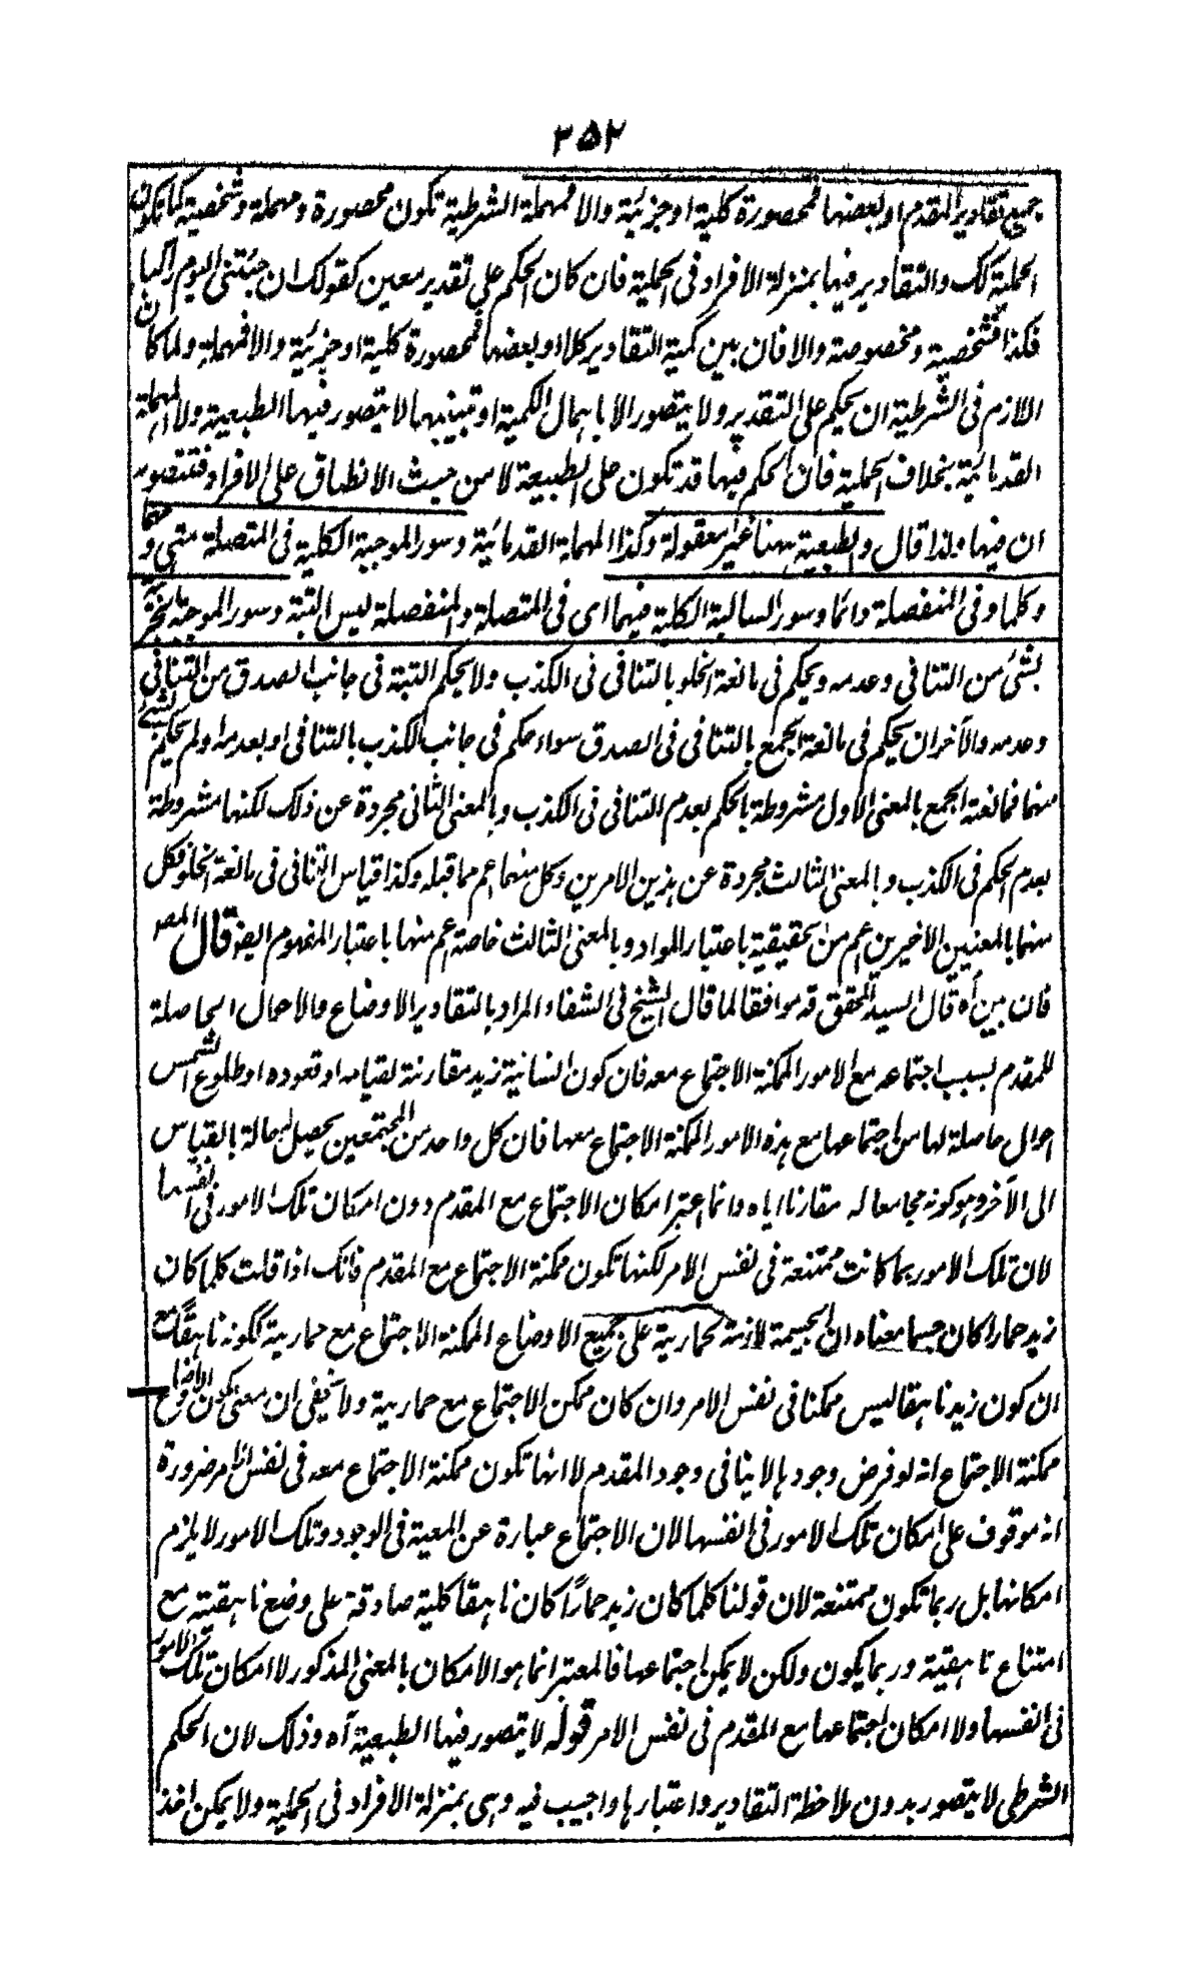 ٢٥٢
جميع تقادير المقدم او بعضها فمحصورة كلية او جزئية والا فمهملة الشرطية تكون محصورة ومهملة وشخصية كما تكون
الحملية كك والتقادير فيها بمنزلة الافراد فى الحملية فان كان الحكم على تقدير معين كقولك ان جئتنى اليوم راكبا
فكذا فشخصية ومخصوصة والا فان بين كمية التقادير كلا او بعضها فمحصورة كلية او جزئية والا فمهملة ولما كان
اللازم فى الشرطية ان يحكم على التقدير ولا يتصور الا باهمال الكمية او تبيينها لا يتصور فيها الطبعية ولا المهملة
القدمائية بخلاف الحملية فان الحكم فيها قد تكون على الطبيعة لا من حيث الانطباق على الافراد فتتصور
ان فيها ولذا قال والطبعية ههنا غير معقولة وكذا المهملة القدمائية وسور الموجبة الكلية فى المتصلة متى ومهما
وكلما وفى المنفصلة دائما وسور السالبة الكلية فيهما اى فى المتصلة والمنفصلة ليس البتة وسور الموجبة الجزئية
بشئ من التنافى وعدمه ويحكم فى مانعة الخلو بالتنافى فى الكذب ولا يحكم البتة فى جانب الصدق من التنافى
وعدمه والآخر ان يحكم فى مانعة الجمع بالتنافى فى الصدق سواء حكم فى جانب الكذب بالتنافى او بعدمه او لم يحكم بشئ
منهما فمانعة الجمع بالمعنى الاول مشروطة بالحكم بعدم التنافى فى الكذب وبالمعنى الثانى مجردة عن ذلك لكنها مشروطة
بعدم الحكم فى الكذب وبالمعنى الثالث مجردة عن هذين الامرين وكل منهما اعم مما قبله وكذا قياس التنافى فى مانعة الخلو فكل
منهما بالمعنيين الاخيرين اعم من الحقيقية باعتبار المواد وبالمعنى الثالث خاصة اعم منها باعتبار المفهوم ايضا قال المصـ
فان بين آه قال السيد المحقق قد موافقا لما قال الشيخ فى الشفاء المراد بالتقادير الاوضاع والاحوال الحاصلة
للمقدم بسبب اجتماعه مع الامور الممكنة الاجتماع معه فان كون انسانية زيد مقارنة لقيامه او قعوده او طلوع الشمس
احوال حاصلة لها من اجتماعها مع هذه الامور الممكنة الاجتماع معها فان كل واحد من المجتمعين يحصل له حالة بالقياس
الى الآخر وهو كونه مجامعا له مقارنا اياه وانما اعتبر امكان الاجتماع مع المقدم دون امكان تلك الامور فى انفسها
لان تلك الامور ربما كانت ممتنعة فى نفس الامر لكنها تكون ممكنة الاجتماع مع المقدم فانك اذا قلت كلما كان
زيد حمارا كان جسما معناه ان الجسمية لازمة لحمارية على جميع الاوضاع الممكنة الاجتماع مع حمارية ككونه ناهقا مع
ان كون زيد ناهقا ليس ممكنا فى نفس الامر وان كان ممكن الاجتماع مع حمارية ولا يخفى ان معنى كون الاوضاع
ممكنة الاجتماع انه لو فرض وجودها لا ينافى وجود المقدم لا انها تكون ممكنة الاجتماع معه فى نفس الامر ضرورة
انه موقوف على امكان تلك الامور فى انفسها لان الاجتماع عبارة عن المعية فى الوجود وتلك الامور لا يلزم
امكانها بل ربما تكون ممتنعة لان قولنا كلما كان زيد حمارًا كان ناهقا كلية صادقة على وضع ناهقية مع
امتناع ناهقية وربما يكون ولكن لا يمكن اجتماعها فالمعتبر انما هو الامكان بالمعنى المذكور لا امكان تلك الامور
فى انفسها ولا امكان اجتماعها مع المقدم فى نفس الامر قوله لا يتصور فيها الطبعية آه وذلك لان الحكم
الشرطى لا يتصور بدون ملاحظة التقادير واعتبارها واجيب فيه وهى بمنزلة الافراد فى الحملية ولا يمكن اخذ